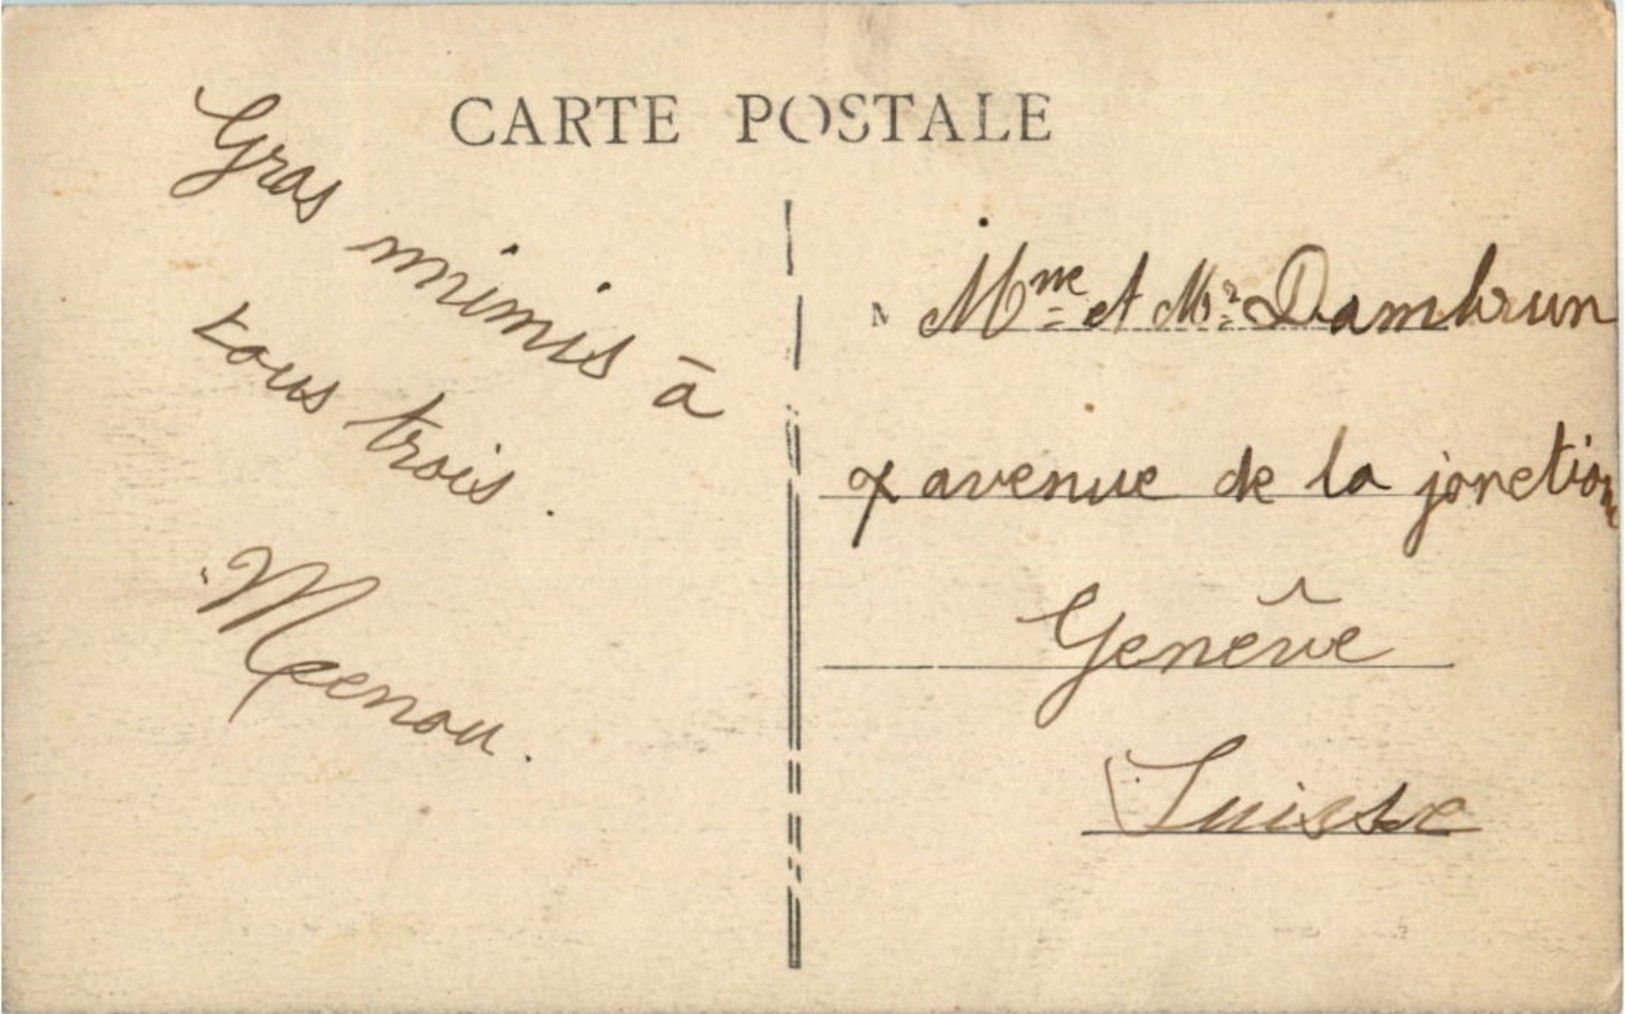 CARTE POSTALE
Gros mimis à
tous trois.
Meenou.
M
Mme et Mr Dambrun
7 avenue de la jonction
Genêve
Suisse